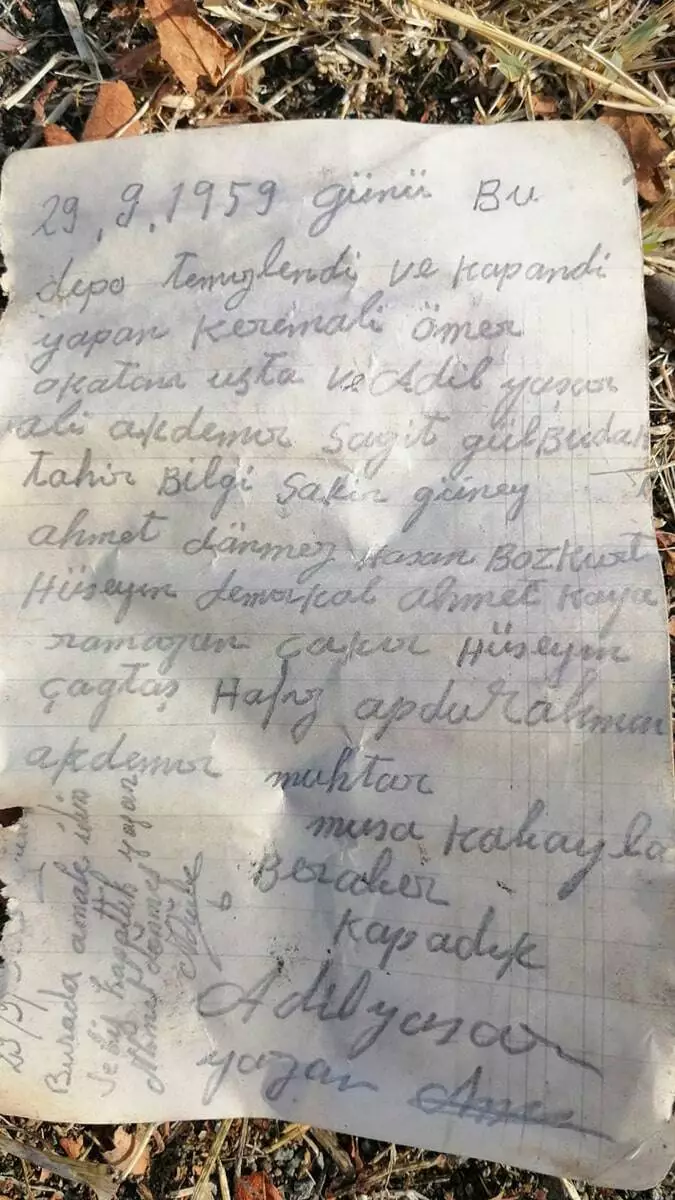 29.9.1959 günü Bu
depo temizlendi ve kapandi
yapan keremali ömer
akatan usta ve Adil yaşar
vali akdemir Sagit gülBudak
tahir Bilgi Şakir güney
ahmet dönmez Hasan Bozkurt
Hüseyin demirkal ahmet kaya
ramazan çakır Hüseyin
çagtaş Hafız apdurahman
akdemir muhtar
musa kahayla
Beraber
kapadık
Adil yaşar
yazan
Burada amale idim
kapattık yazan
Ahmet dönmez